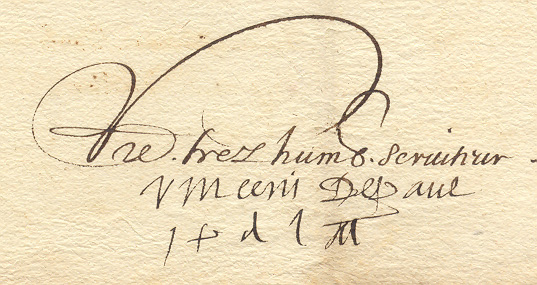 Vre. trez humb. serviteur
Vincent Depaul
i p d l M